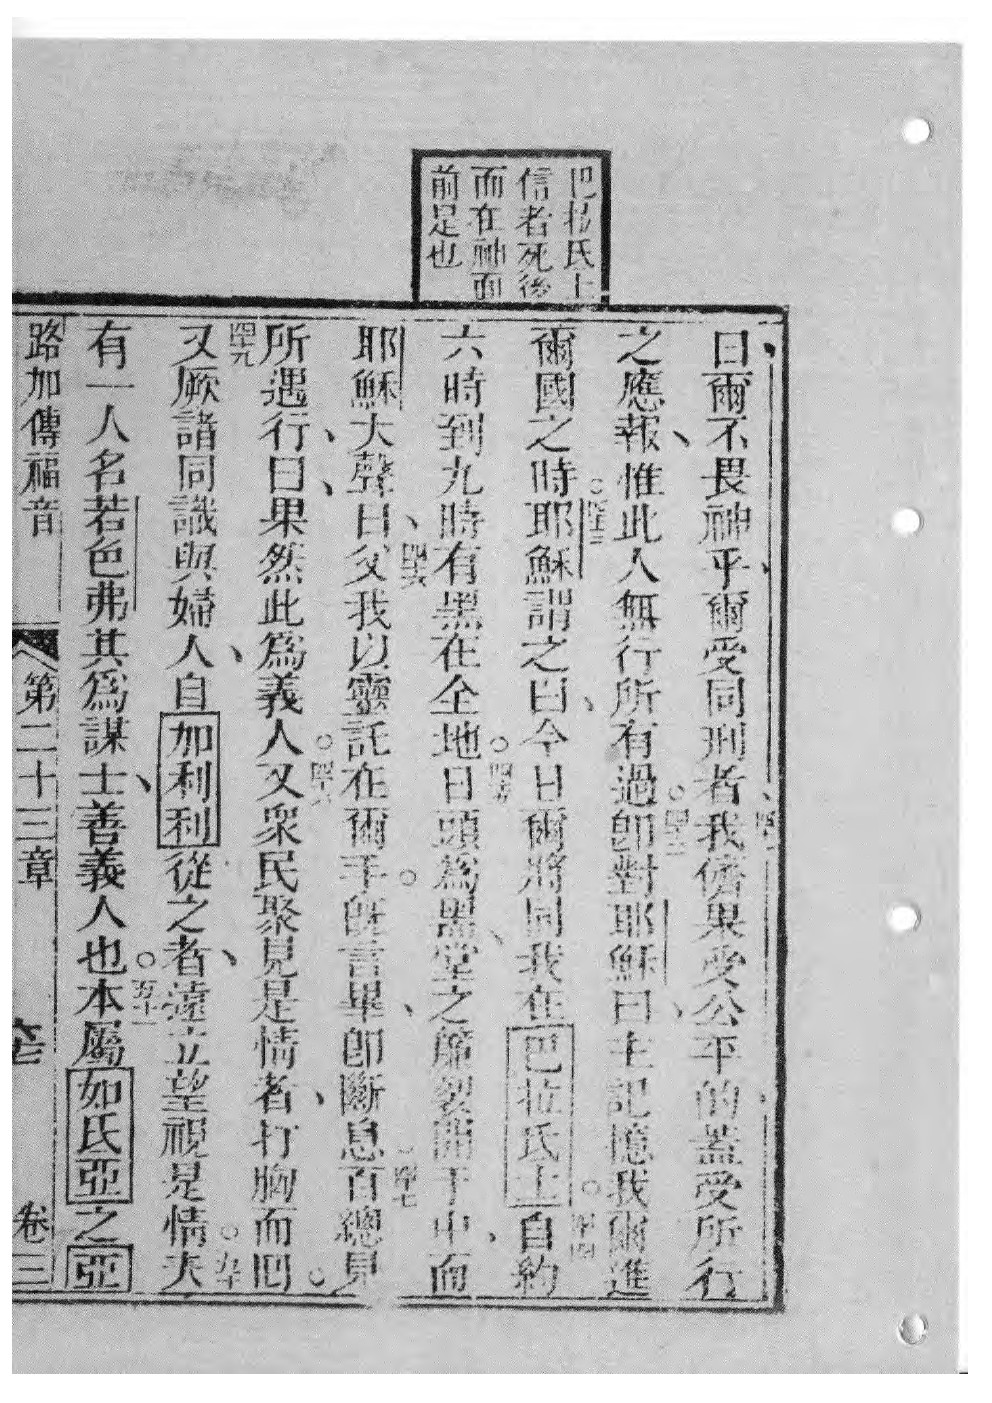 巴拉氏士
信者死後
而在神面
前是也
曰爾不畏神乎爾受同刑者我儕果受公平的蓋受所行
之應報惟此人無行所有過卽對耶穌曰主記憶我爾進
爾國之時耶穌謂之曰今日爾將同我在巴拉氏士自約
六時到九時有黑在全地日頭爲黑堂之簾裂開于中而
耶穌大聲曰父我以靈託在爾手旣言畢卽斷息百總見
所遇行曰果然此爲義人又衆民聚見是情者打胸而囘
又厥諸同識與婦人自加利利從之者遠立望視是情夫
有一人名若色弗其爲謀士善義人也本屬如氏亞之亞
路加傳福音 第二十三章 卷三